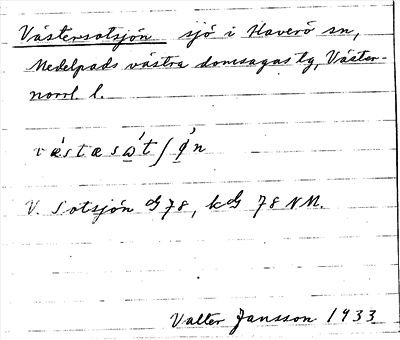 Västersotsjön sjö i Haverö sn,
Medelpads västra domsagas tg, Väster-
norrl. l.
V. Sotsjön G 78, kG 78 NM.
Valter Jansson 1933